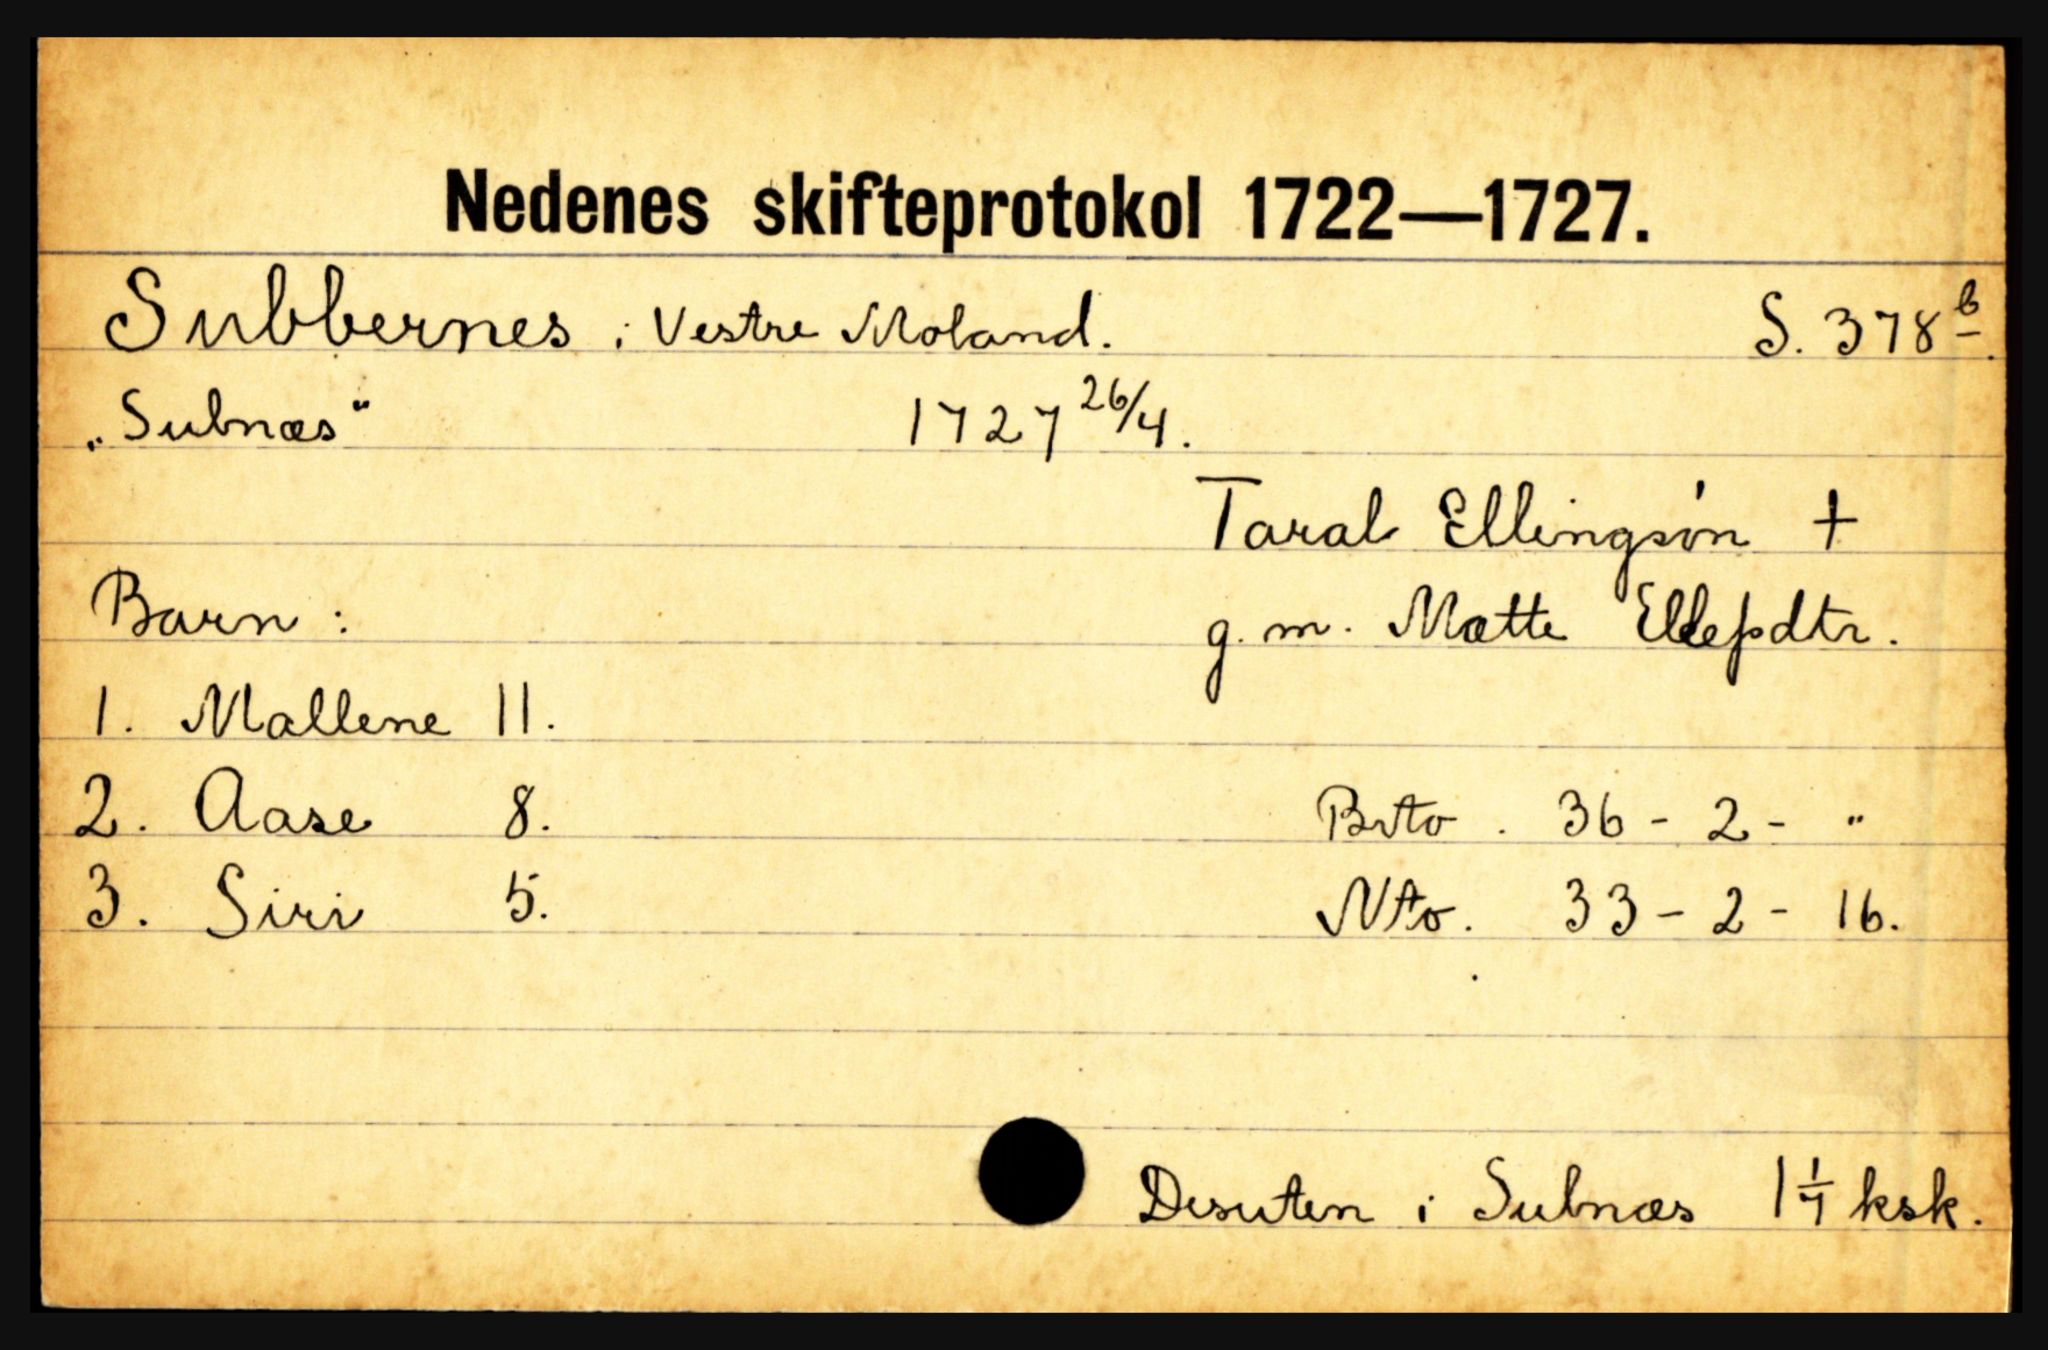 Nedenes skifteprotokol 1722—1727.
Subbernes i Vestre Moland. S. 378 b.
„Subnæs“ 1727 26/4.
Taral Ellingsón †
Barn: g. m. Mætte Ellefsdtr.
1. Mallene 11.
2. Aase 8. Brto. 36 - 2 - "
3. Siri 5. Nto. 33 - 2 - 16.
Desuten i Subnæs 1 1/7 ksk.